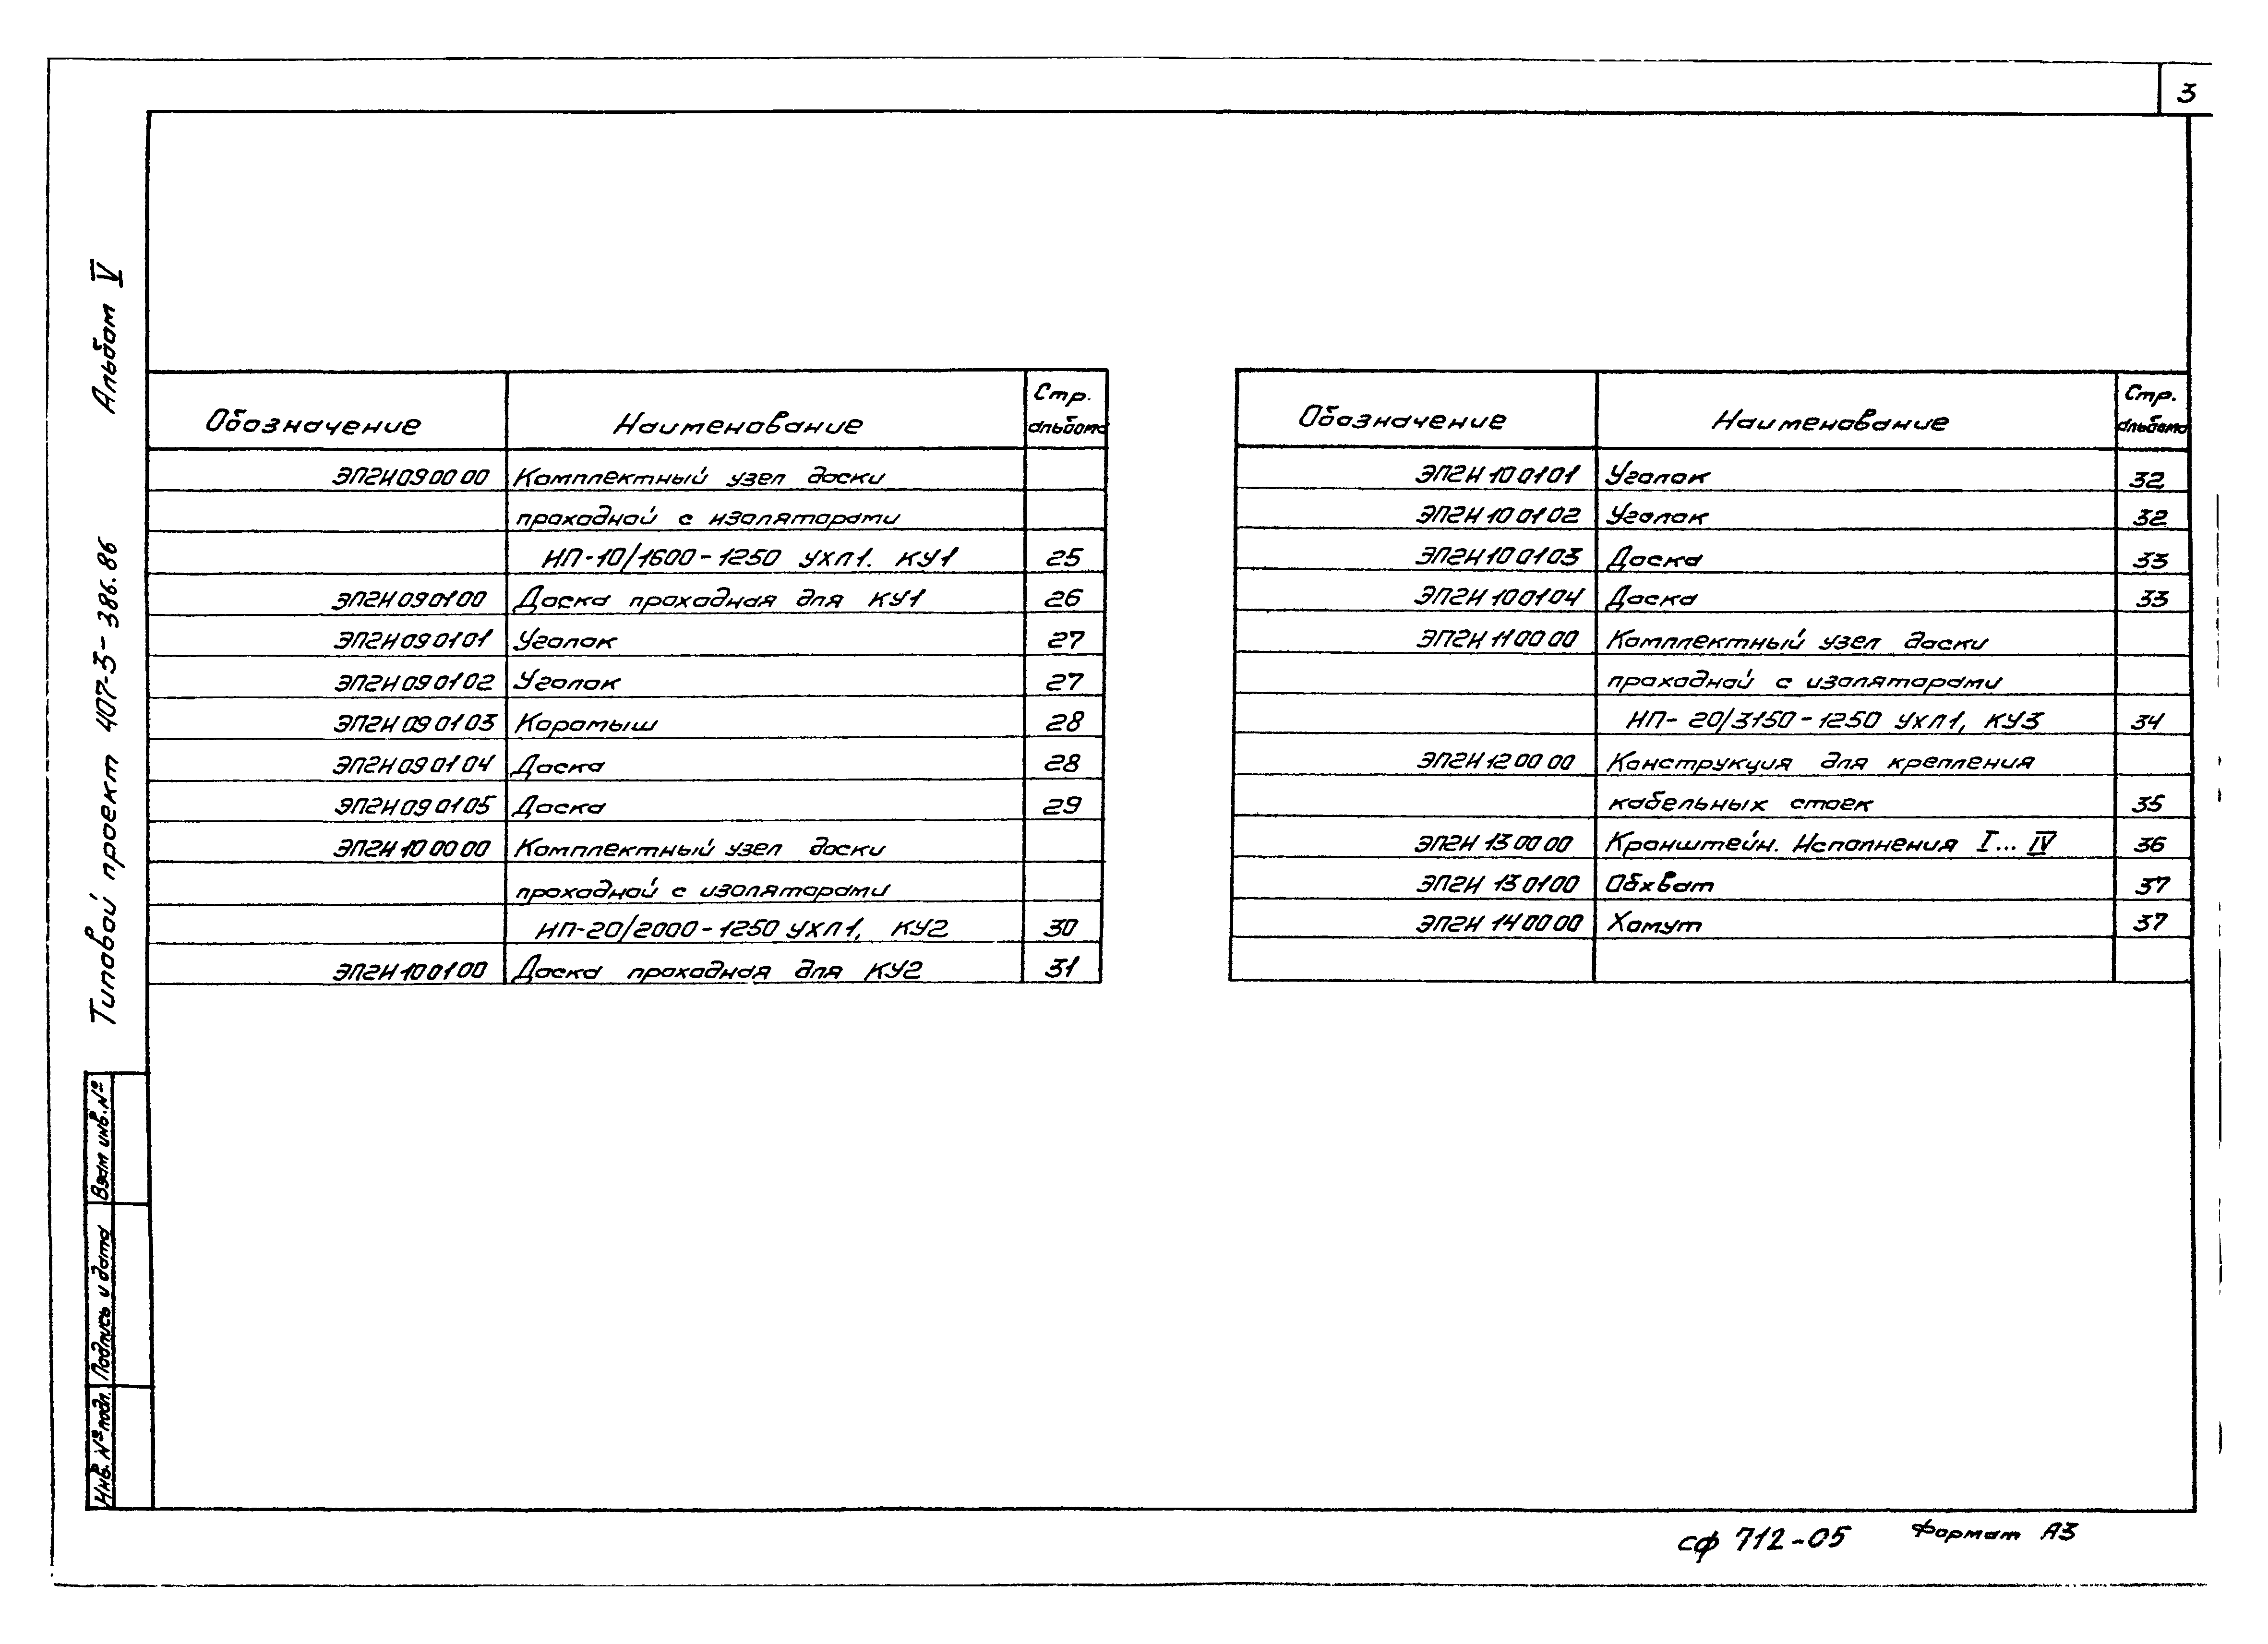 3
Альбом V
Типовой проект 407-3-386.86
Обозначение Наименование Стр. альбома
ЭП2И 09 00 00 Комплектный узел доски
проходной с изоляторами
ИП-10/1600-1250 УХЛ1. КУ1 25
ЭП2И 09 01 00 Доска проходная для КУ1 26
ЭП2И 09 01 01 Уголок 27
ЭП2И 09 01 02 Уголок 27
ЭП2И 09 01 03 Коромыш 28
ЭП2И 09 01 04 Доска 28
ЭП2И 09 01 05 Доска 29
ЭП2И 10 00 00 Комплектный узел доски
проходной с изоляторами
ИП-20/2000-1250 УХЛ1, КУ2 30
ЭП2И 10 01 00 Доска проходная для КУ2 31
Обозначение Наименование Стр. альбома
ЭП2И 10 01 01 Уголок 32
ЭП2И 10 01 02 Уголок 32
ЭП2И 10 01 03 Доска 33
ЭП2И 10 01 04 Доска 33
ЭП2И 11 00 00 Комплектный узел доски
проходной с изоляторами
ИП-20/3150-1250 УХЛ1, КУ3 34
ЭП2И 12 00 00 Конструкция для крепления
кабельных стоек 35
ЭП2И 13 00 00 Кронштейн. Исполнения I... IV 36
ЭП2И 13 01 00 Обхват 37
ЭП2И 14 00 00 Хомут 37
Взам инв. №
Подпись и дата
Инв. № подл.
сф 712-05 Формат А3